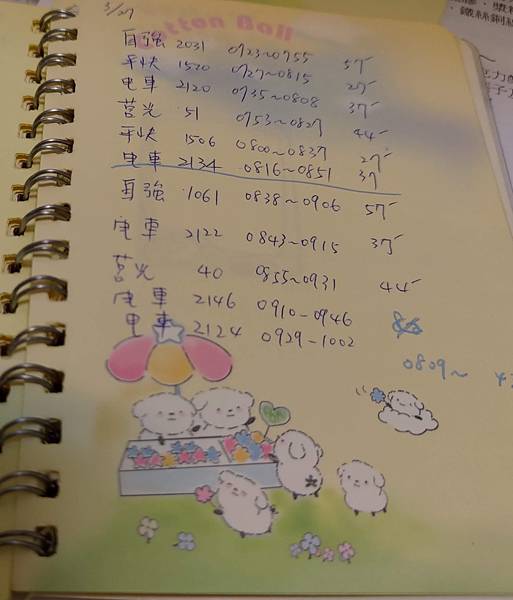 3/27
Cotton Ball
自強 2031 0723~0755 57
平快 1520 0727~0815 27
电車 2120 0735~0808 37
莒光 51 0753~0827 44
平快 1506 0800~0837 27
电車 2134 0816~0851 37
自強 1061 0838~0906 57
电車 2122 0843~0915 37
莒光 40 0855~0931 44
电車 2146 0910-0946
电車 2124 0929-1002
0809~